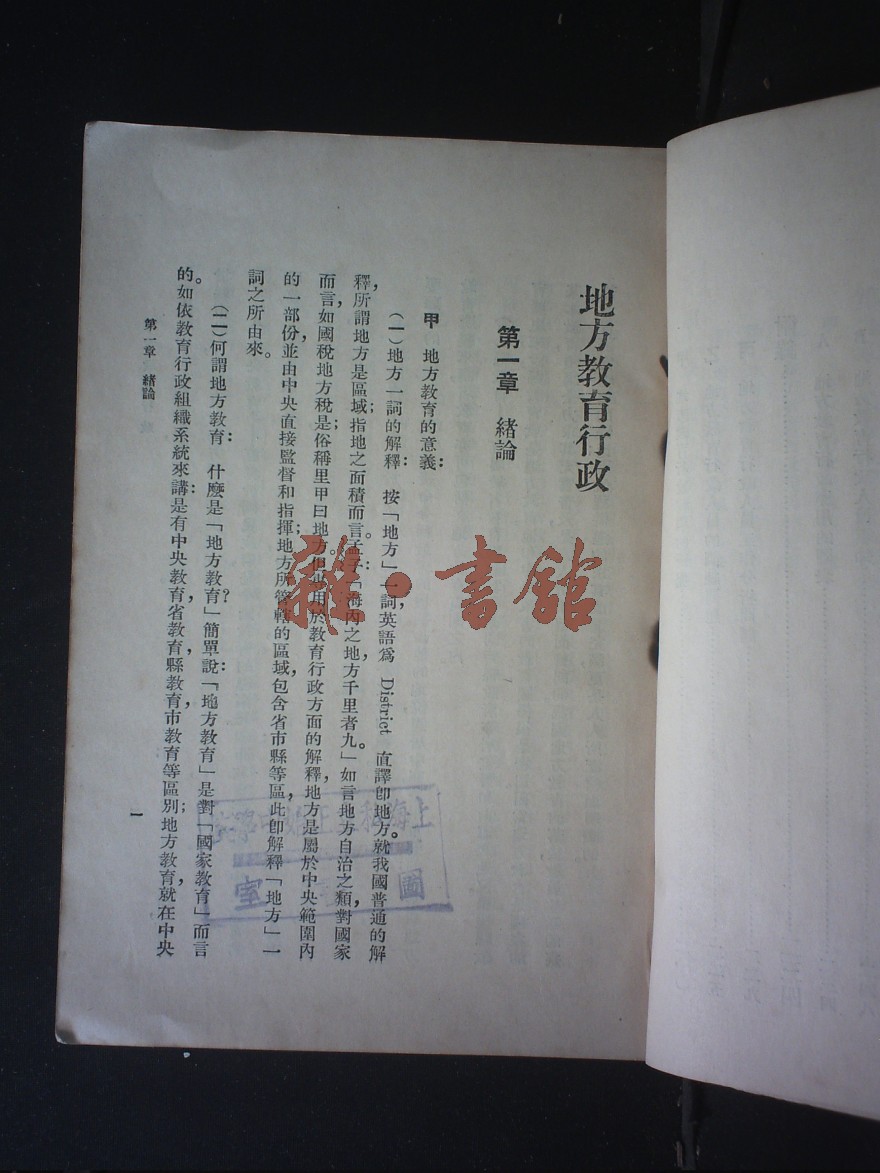 地方教育行政
第一章 緒論
甲 地方教育的意義：
(一)地方一詞的解釋： 按「地方」一詞，英語爲 District 直譯卽地方。就我國普通的解
釋，所謂地方是區域；指地之面積而言。孟子：「海內之地方千里者九。」如言地方自治之類，對國家
而言，如國稅地方稅是；俗稱里甲曰地方。但用於教育行政方面的解釋，地方是屬於中央範圍內
的一部份，並由中央直接監督和指揮；地方所管轄的區域，包含省市縣等區，此卽解釋「地方」一
詞之所由來。
(二)何謂地方教育： 什麼是「地方教育」？簡單說：「地方教育」是對「國家教育」而言
的。如依教育行政組織系統來講：是有中央教育，省教育，縣教育，市教育等區別；地方教育，就在中央
第一章 緒論
一
雜·書館
上海
圖
室